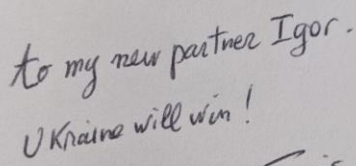 to my new partner Igor.
Ukraine will win!